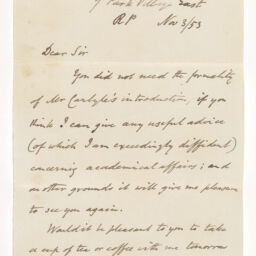 7 Park Village East
R P Nov 3/53
Dear Sir
You did not need the formality
of Mr Carlyle's introduction, if you
think I can give any useful advice
(of which I am exceedingly diffident)
concerning academical affairs; and
on other grounds it will give me pleasure
to see you again.
Would it be pleasant to you to take
a cup of tea or coffee with me tomorrow